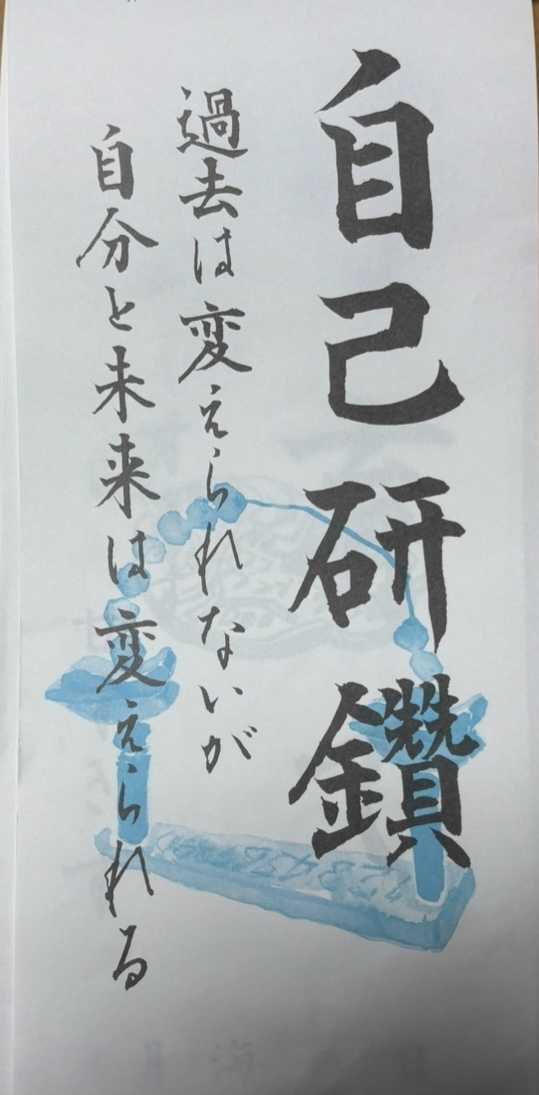 自己研鑽
過去は変えられないが
自分と未来は変えられる